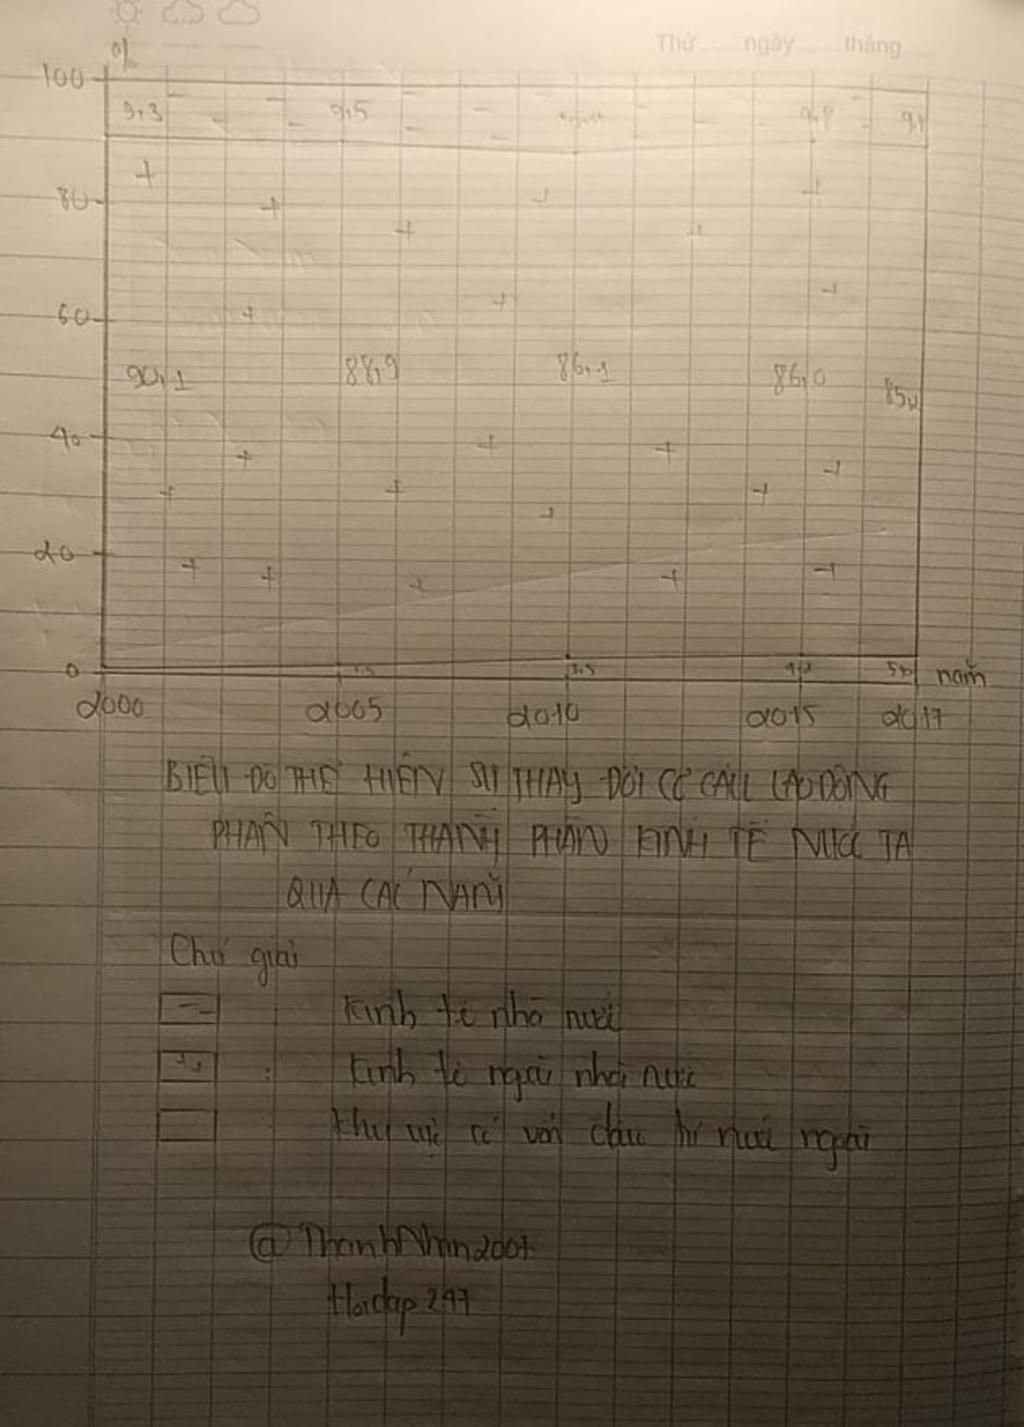 Thứ ngày tháng
%
100
9,3 9,5 9,8 9,1
80
60
90,1 88,9 86,1 86,0
40
20
0 năm
2000 2005 2010 2015 2017
BIỂU ĐỒ THỂ HIỆN SỰ THAY ĐỔI CƠ CẤU LAO ĐỘNG
PHÂN THEO THÀNH PHẦN KINH TẾ NƯỚC TA
QUA CÁC NĂM
Chú giải
Kinh tế nhà nước
: Kinh tế ngoài nhà nước
: Khu vực có vốn đầu tư nước ngoài
@ThanhNhan2007
Hoidap247